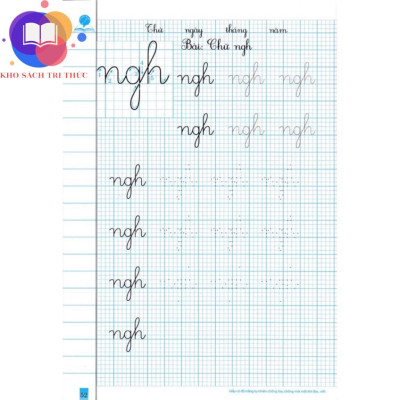 Thứ ngày tháng năm
Bài: Chữ ngh
KHO SÁCH TRI THỨC
ngh ngh ngh ngh
ngh ngh ngh
ngh
ngh
ngh
ngh
52